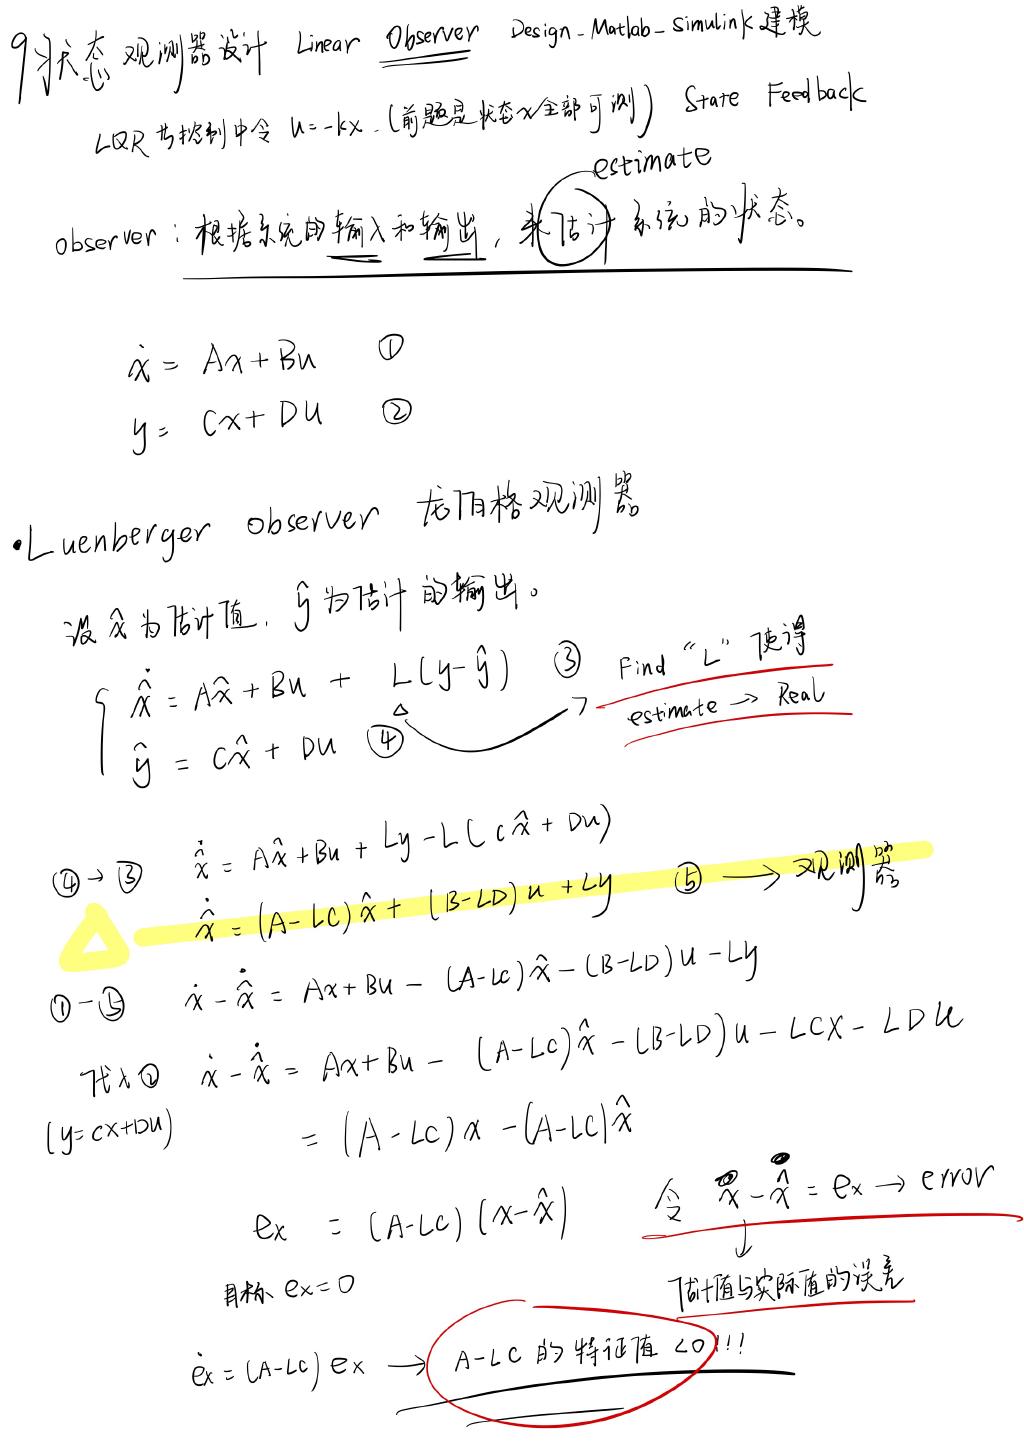 9 状态观测器设计 Linear Observer Design_Matlab_Simulink建模
LQR 控制中令 u=-kx.(前题是状态x全部可测) State Feedback
estimate
observer : 根据系统的输入和输出, 来估计系统的状态。
ẋ = Ax+Bu ①
y = Cx+DU ②
·Luenberger observer 龙伯格观测器
设 x̂ 为估计值. ŷ 为估计的输出。
x̂̇ = Ax̂+Bu + L(y-ŷ) ③ Find "L" 使得
estimate → Real
ŷ = Cx̂ + DU ④
④→③ x̂̇ = Ax̂+Bu + Ly-L(cx̂+Du)
△ x̂̇ = (A-LC)x̂+ (B-LD)u+Ly ⑤ → 观测器
①-⑤ ẋ-x̂̇ = Ax+Bu-(A-LC)x̂-(B-LD)u-Ly
代入② ẋ-x̂̇ = Ax+Bu- (A-LC)x̂-(B-LD)u-LCX-LDU
(y=cx+DU) = (A-LC)x-(A-LC)x̂
令 x-x̂=ex→error
ex = (A-LC)(x-x̂)
估计值与实际值的误差
目标 ex=0
ėx=(A-LC)ex → A-LC的特征值<0!!!